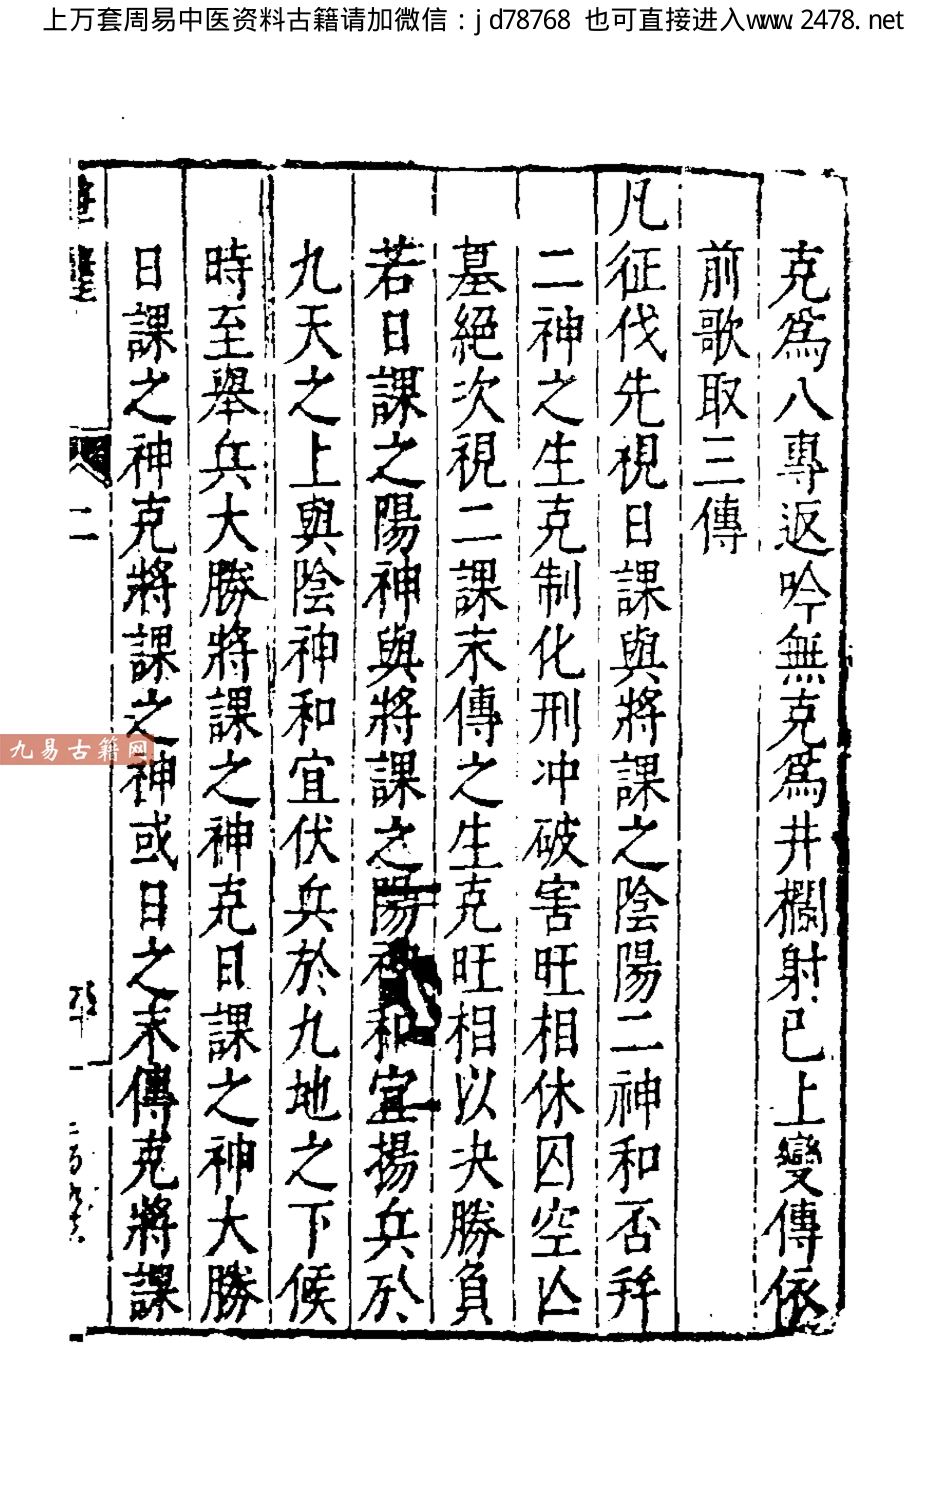 上万套周易中医资料古籍请加微信：jd78768 也可直接进入www.2478.net
克爲八專返吟無克爲井欄射已上變傳依
前歌取三傳
凡征伐先視日課與將課之陰陽二神和否并
二神之生克制化刑冲破害旺相休囚空亾
墓絕次視二課末傳之生克旺相以决勝負
若日課之陽神與將課之陽神和宜揚兵於
九天之上與陰神和宜伏兵於九地之下候
時至舉兵大勝將課之神克日課之神大勝
日課之神克將課之神或日之末傳克將課
二
九易古籍网